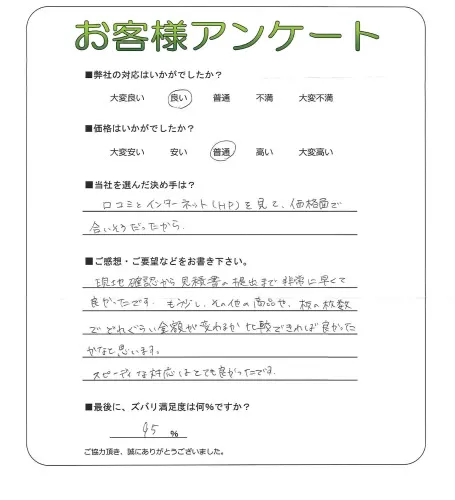 お客様アンケート
■弊社の対応はいかがでしたか?
大変良い 良い 普通 不満 大変不満
■価格はいかがでしたか?
大変安い 安い 普通 高い 大変高い
■当社を選んだ決め手は?
口コミとインターネット(HP)を見て、価格面で
合いそうだったから。
■ご感想・ご要望などをお書き下さい。
現地確認から見積書の提出まで非常に早くて
良かったです。もう少し、その他の商品や、板の枚数
でどれぐらい金額が変わるか比較できれば良かった
かなと思います。
スピーディな対応はとても良かったです。
■最後に、ズバリ満足度は何%ですか?
95 %
ご協力頂き、誠にありがとうございました。